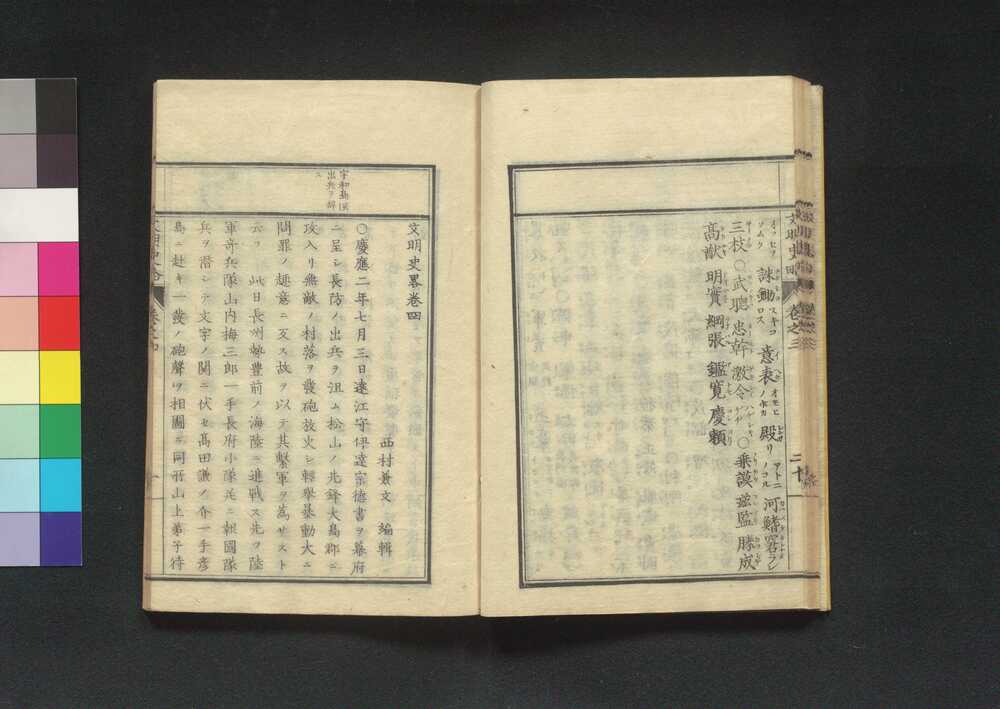 誅鋤スキコロス 意表オモヒノホカ 殿リアトニノコル 河鰭 窘ラン
三枝〇武聰 忠幹 激令ハゲシキ〇乗謨 茲監 勝成
高猷 明實 綱張 鑑寛 慶頼
文明史畧 卷之三 二十
宇和島漢
出兵ヲ辞
ス
文明史畧卷四
西村兼文 編輯
〇慶應二年七月三日遠江守伊達宗德書ヲ幕府
ニ呈シ長防ノ出兵ヲ沮ム松山ノ先鋒大島郡ニ
攻入リ無敵ノ村落ヲ發砲放火シ輕擧暴動大ニ
問罪ノ趣意ニ反ス故ヲ以テ其繫軍ヲ爲サスト
云フ 此日長州勢豊前ノ海陸ニ進戰ス先ツ陸
軍奇兵隊山内梅三郎一手長府小隊并ニ報國隊
兵ヲ潜シテ文字ノ關ニ伏セ髙田謙ノ介一手彦
島ニ赴キ一發ノ砲聲ヲ相圖ニ同所山上弟子待